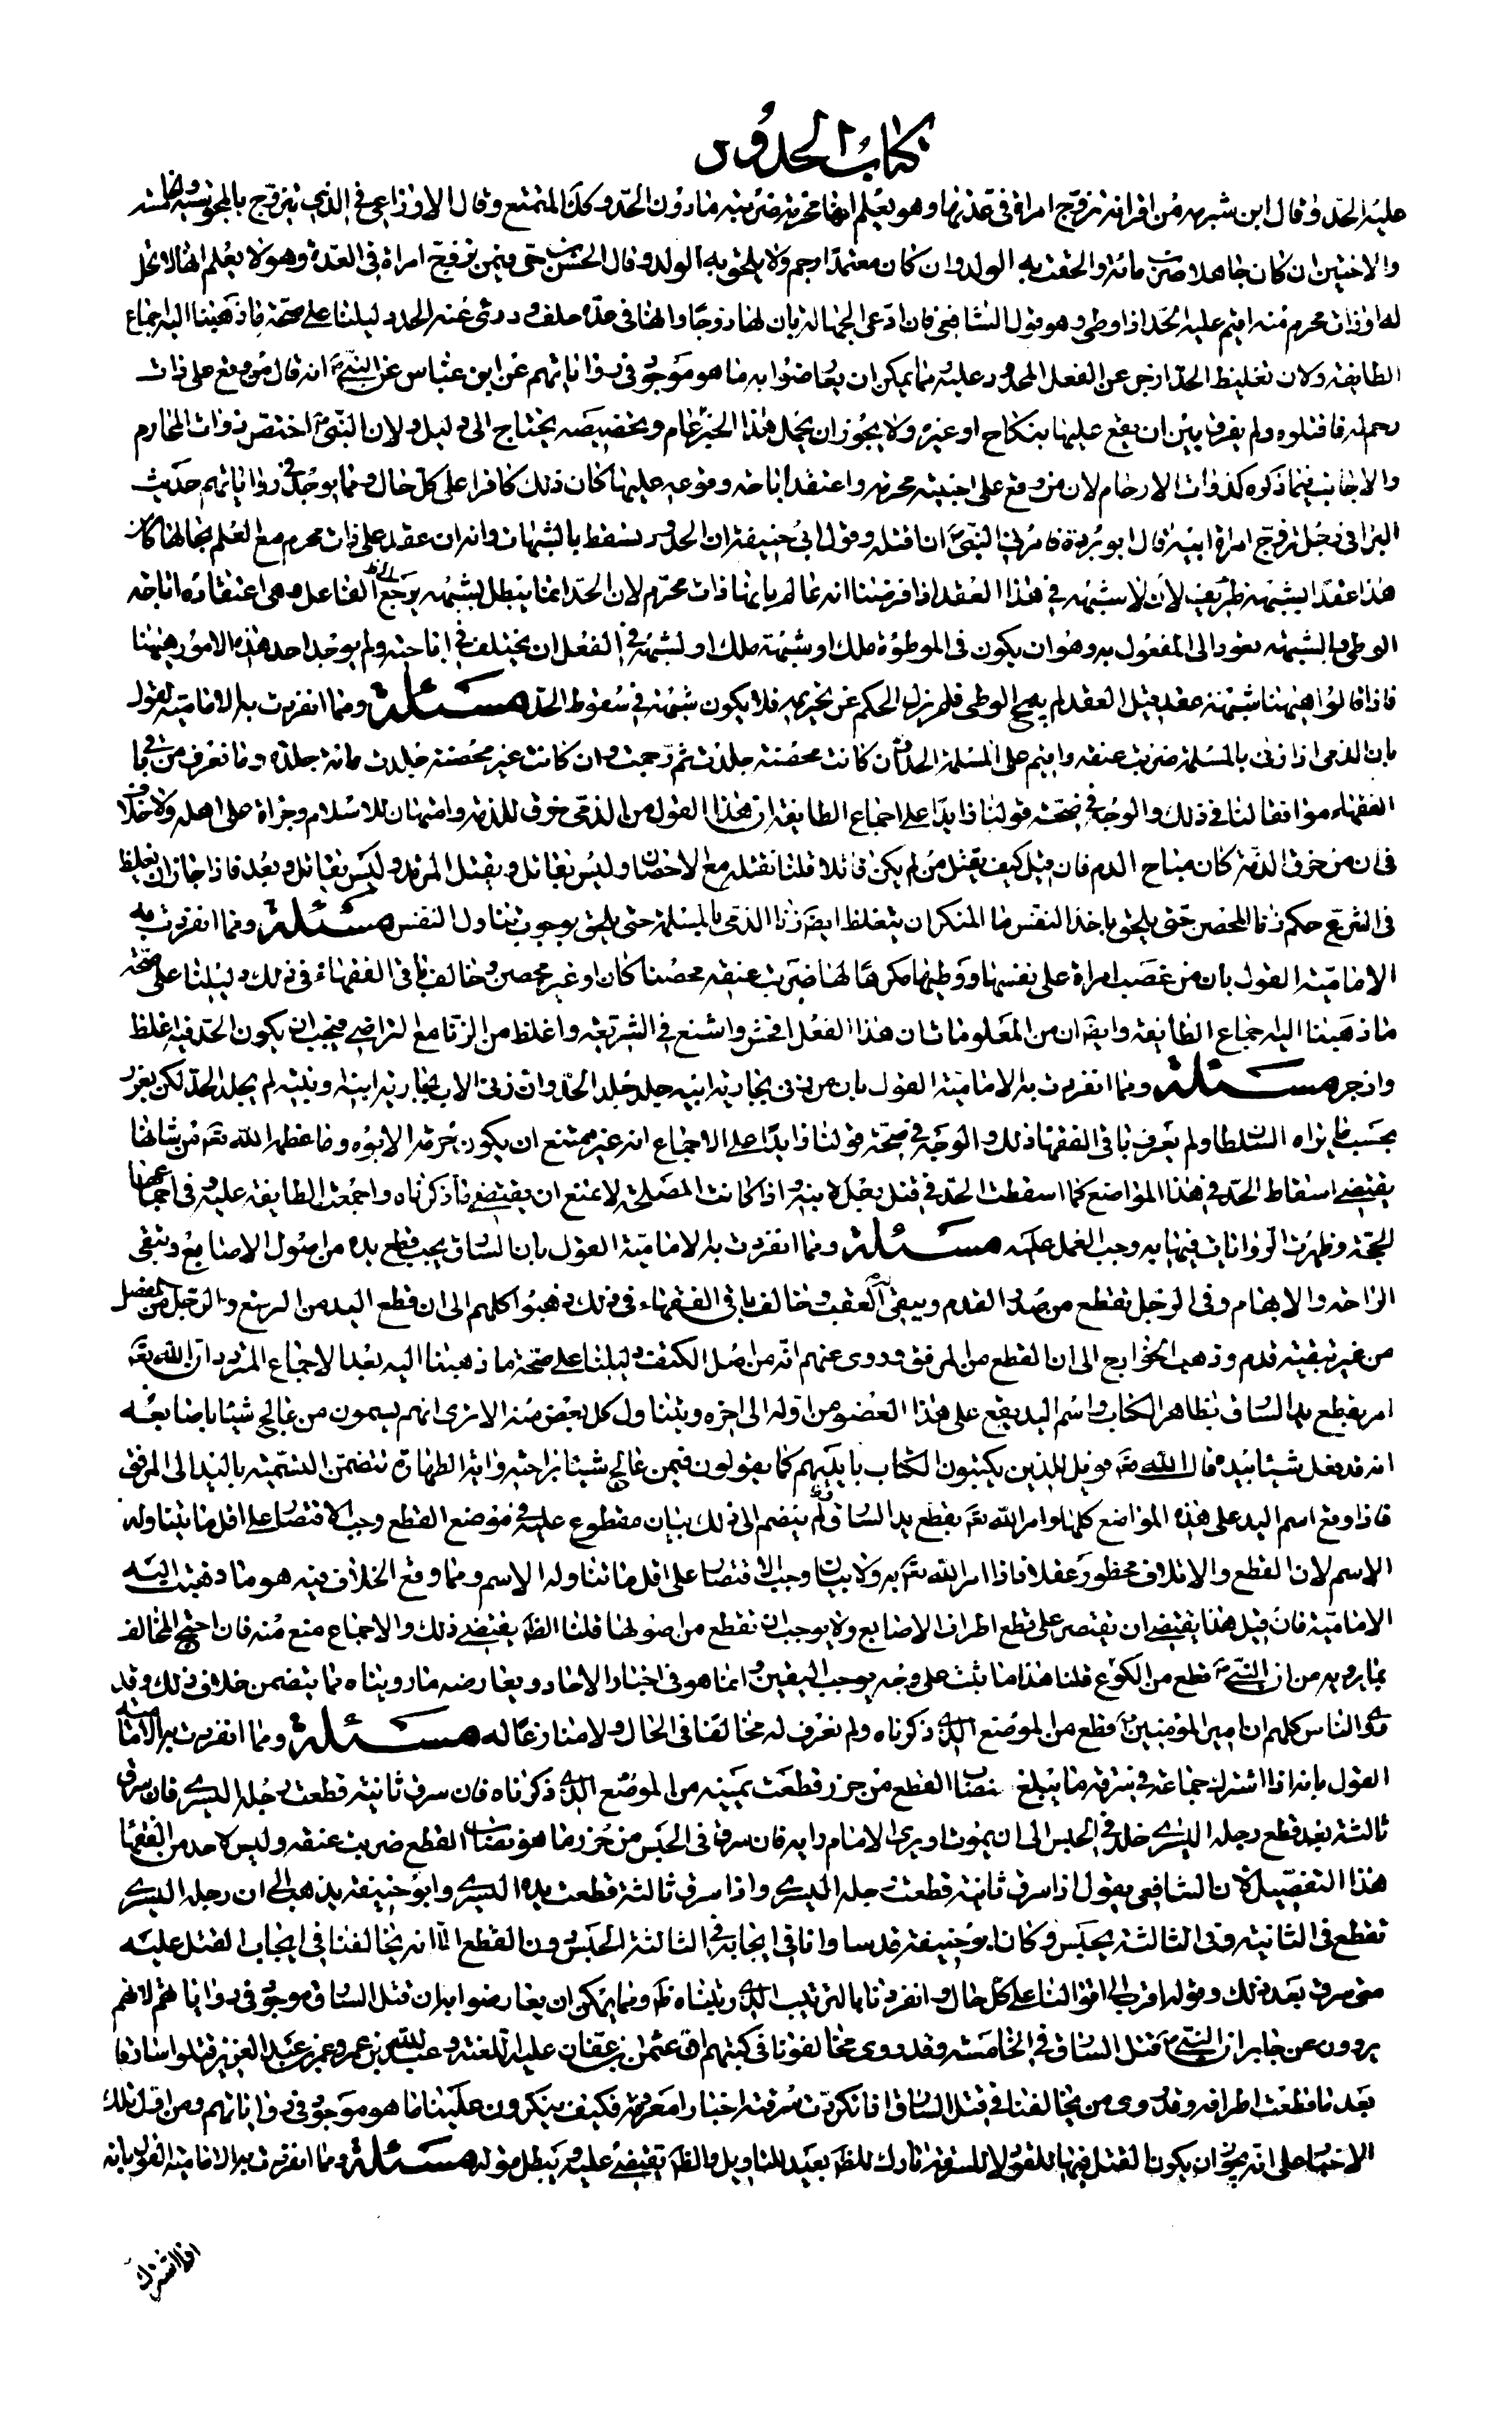 كتاب الحدود
عليه الحد وقال ابن شبرمه من اقر انه تزوج امراة في عدتها وهو يعلم انها محرمة ضربته ما دون الحد وكك المتمتع وقال الاوزاعي في الذي يتزوج بالمجوسية وبالخمسة
والاختين ان كان جاهلا ضرب مائة والحقت به الولد وان كان متعمدا رجم ولا يلحق به الولد وقال الحسن بن حي فيمن تزوج امراة في العدة وهو لا يعلم انها لا تحل
له او ذات محرم منه اقيم عليه الحد اذا وطي وهو قول الشافعي فان ادعى الجهالة بان لها زوجا وانها في عدة حلف ودرئ عنه الحد دليلنا على صحة ما ذهبنا اليه اجماع
الطايفة ولان تغليظ الحد ازجر عن الفعل المحدود عليه مما يمكن ان يعارضوا به ما هو موجود في رواياتهم عن ابن عباس عن النبي ص انه قال من وقع على ذات
رحم له فاقتلوه ولم يفرق بين ان يقع عليها بنكاح او غيره ولا يجوز ان يحمل هذا الخبر عام وتخصيصه يحتاج الى دليل ولان النبي ص اختص ذوات المحارم
والاجانب فيما ذكوه كذوات الارحام لان من وقع على اجنبية محرمة واعتقد اباحة وقوعه عليها كان ذلك كافرا على كل حال ومما يوجد في رواياتهم حديث
البرا في رجل تزوج امراة ابيه قال ابو بردة فامرني النبي ص ان اقتله وقول ابي حنيفة ان الحدود تسقط بالشبهات وانه ان عقد على ذات محرم مع العلم بحالها كان
هذا عقدا بشبهة طريف لان لا شبهه في هذا العقد اذا فرضنا انه عالم بانها ذات محرم لان الحد انما يبطل بشبهه يرجع الى الفاعل وهي اعتقاده اباحة
الوطي وبالشبهه تعود الى المفعول به وهو ان يكون في الموطؤة ملك او شبهة ملك او لشبهة في الفعل ان يختلف في اباحته ولم يوجد احد هذه الامور هيهنا
فاذا قالوا هيهنا شبهة عقد قيل العقد لم يبح الوطي فلم يزل الحكم عن تحريمه فلا يكون شبهة في سقوط الحد مسئلة ومما انفردت به الامامية القول
بان الذمي اذا زنى بالمسلمة ضربت عنقه واقيم على المسلمة الحد فان كانت محصنة جلدت ثم رجمت وان كانت غير محصنة جلدت مائة جلدة وما نعرف من باقي
الفقهاء موافقا لنا في ذلك والوجه في صحته قولنا زايدا على اجماع الطايفة ان هذا الفعل من الذمي خرق للذمة وامتهان للاسلام وجراة على اهله ولا خلاف
في ان من خرق الذمة كان مباح الدم فان قيل كيف يقتل من لم يكن قاتلا قلنا نقتله مع الاحصان وليس بقاتل ويقتل المرتد وليس بقاتل وبعد فاذا جاز ان يغلظ
في الشرع حكم زنا المحصن حتى يلحق باخذ النفس فما المنكر ان يتغلظ ايضا زنا الذمي بالمسلمة حتى يلحق بوجوب تناول النفس مسئلة ومما انفردت به
الامامية القول بان من غصب امراة على نفسها ووطيها مكرها لها ضربت عنقه محصنا كان او غير محصن وخالف باقي الفقهاء في ذلك دليلنا على صحة
ما ذهبنا اليه اجماع الطايفة وايضا ان من المعلومات ان هذا الفعل افحش واشنع في الشريعة واغلظ من الزنا مع التراضي فيجب ان يكون الحد فيه اغلظ
وازجر مسئلة ومما انفردت به الامامية القول بان من زنى بجارية ابيه جلد الحد وان زنى الاب بجارية ابنه وبنته لم يجلد الحد لكن يعزر
بحسب ما يراه السلطان ولم يعرف باقي الفقها ذلك والوجه في صحة قولنا زايدا على الاجماع انه غير ممتنع ان يكون حرمة الابوه وما عظمه الله تع من شانها
يقتضي اسقاط الحد في هذا المواضع كما اسقطت الحد في قتل رجل لابنه واذا كانت المصلحة لا تمنع ان يقتضي ما ذكرناه واجمعت الطايفة عليه وفي اجماعها
الحجة وظهرت الروايات فيها به وجب العمل عليه مسئلة ومما انفردت به الامامية القول بان السارق يجب قطع يده من اصول الاصابع وتبقى
الراحة والابهام وفي الرجل تقطع من صدر القدم ويبقى له العقب وخالف باقي الفقهاء في ذلك ذهبوا كلهم الى ان قطع اليد من الرسغ والرجل من المفصل
من غير تبقية قدم وذهب الخوارج الى ان القطع من المرفق وروى عنهم انه من اصل الكتف دليلنا على صحة ما ذهبنا اليه بعد الاجماع المتردد ان الله تع
امر بقطع يد السارق بظاهر الكتاب واسم اليد يقع على هذا العضو من اوله الى اخره ويتناول كل بعض منه الا ترى انهم يسمون من عالج شيئا باصابعه
انه قد فعل شيئا بيده قال الله تع فويل للذين يكتبون الكتاب بايديهم كما يقولون فيمن عالج شيئا براحته واية الطهارة تتضمن التسمية باليد الى المرفق
فاذا وقع اسم اليد على هذه المواضع كلها وامر الله تع بقطع يد السارق ولم ينضم الى ذلك بيان مقطوع عليه في موضع القطع وجب الاقتصار على اقل ما يتناوله
الاسم لان القطع والاتلاف محظور عقلا فاذا امر الله تع به ولا بيان وجب الاقتصار على اقل ما تناوله الاسم ومما وقع الخلاف فيه هو ما ذهبت اليه
الامامية فان قيل هذا يقتضي ان يقتصر على قطع اطراف الاصابع ولا يوجب ان تقطع من اصولها قلنا الظ يقتضي ذلك والاجماع منع منه فان احتج المخالف
بما يروي من ان النبي ص قطع من الكوع قلنا هذا ما يثبت على وجه يوجب اليقين وانما هو في اخبار الاحاد ويعارضه ما رويناه مما يتضمن خلاف ذلك وقد
روى الناس كلهم ان امير المؤمنين ع قطع من الموضع الذي ذكرناه ولم نعرف له مخالفا في الحال ولا منازعا له مسئلة ومما انفردت به الامامية
القول بانه اذا اشترك جماعة في سرقة ما يبلغ نصاب القطع من حرز قطعت يمينه من الموضع الذي ذكرناه فان سرق ثانية قطعت رجله اليسرى فان سرق
ثالثة بعد قطع رجله اليسرى خلد في الحبس الى ان يموت او يرى الامام رايه فان سرق في الحبس من حرز ما هو نصاب القطع ضربت عنقه وليس لاحد من الفقها
هذا التفصيل لان الشافعي يقول اذا سرق ثانية قطعت رجله اليسرى واذا سرق ثالثة قطعت يده اليسرى وابو حنيفة يذهب الى ان رجله اليسرى
تقطع في الثانية وفي الثالثة يحبس وكان ابو حنيفة قد ساوانا في ايجابه في الثالثة الحبس دون القطع الا انه يخالفنا في ايجاب القتل عليه
متى سرق بعد ذلك وقوله اقرب الى اقوالنا على كل حال وانفردنا بالترتيب الذي رتبناه ظ ومما يمكن ان يعارضوا به ان قتل السارق موجود في رواياتهم لانهم
يروون عن جابر ان النبي ص قتل السارق في الخامسة وقد روى مخالفونا في كتبهم ان عثمن بن عفان عليه اللعنة وعبد الله بن عمر وعمر بن عبد العزيز قتلوا سارقا
بعد ما قطعت اطرافه وقد روى من يخالفنا في قتل السارق اذا تكررت سرقته اخبارا معروفة فكيف ينكرون علينا ما هو موجود في رواياتهم ومن اول تلك
الاخبار على انه يجوز ان يكون القتل فيها للقود لا للسرقة تارك للظ بعيد التاويل والظ يقتضي عليه ويبطل قوله مسئلة ومما انفردت به الامامية القول بانه
اذا اشترك